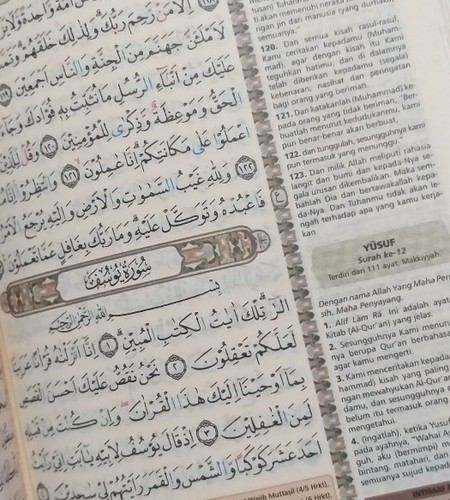 إِلَّا مَن رَّحِمَ رَبُّكَ ۚ وَلِذَٰلِكَ خَلَقَهُمْ ۗ وَتَمَّتْ
لَأَمْلَأَنَّ جَهَنَّمَ مِنَ الْجِنَّةِ وَالنَّاسِ أَجْمَعِينَ ١١٩
عَلَيْكَ مِنْ أَنبَاءِ الرُّسُلِ مَا نُثَبِّتُ بِهِ فُؤَادَكَ ۚ وَجَاءَ
الْحَقُّ وَمَوْعِظَةٌ وَذِكْرَىٰ لِلْمُؤْمِنِينَ ١٢٠ وَقُل لِّلَّذِينَ
اعْمَلُوا عَلَىٰ مَكَانَتِكُمْ إِنَّا عَامِلُونَ ١٢١ وَانتَظِرُوا إِنَّا
١٢٢ وَلِلَّهِ غَيْبُ السَّمَاوَاتِ وَالْأَرْضِ وَإِلَيْهِ يُرْجَعُ الْأَمْرُ
فَاعْبُدْهُ وَتَوَكَّلْ عَلَيْهِ ۚ وَمَا رَبُّكَ بِغَافِلٍ عَمَّا تَعْمَلُونَ
سُورَةُ يُوسُفَ
بِسْمِ اللَّهِ الرَّحْمَٰنِ الرَّحِيمِ
الر ۚ تِلْكَ آيَاتُ الْكِتَابِ الْمُبِينِ ١ إِنَّا أَنزَلْنَاهُ قُرْآنًا عَرَبِيًّا
لَّعَلَّكُمْ تَعْقِلُونَ ٢ نَحْنُ نَقُصُّ عَلَيْكَ أَحْسَنَ الْقَصَصِ
بِمَا أَوْحَيْنَا إِلَيْكَ هَٰذَا الْقُرْآنَ وَإِن كُنتَ مِن قَبْلِهِ
لَمِنَ الْغَافِلِينَ ٣ إِذْ قَالَ يُوسُفُ لِأَبِيهِ يَا أَبَتِ إِنِّي رَأَيْتُ
أَحَدَ عَشَرَ كَوْكَبًا وَالشَّمْسَ وَالْقَمَرَ رَأَيْتُهُمْ لِي سَاجِدِينَ
Wajib Muttaṣil (4/5 Hrkt),
tusan) Tuhanmu
ti akan memenuhi neraka
ngan jin dan manusia (yang durhaka)
semuanya."
120. Dan semua kisah rasul-rasul,
Kami ceritakan kepadamu (Muham-
mad), agar dengan kisah itu Kami
teguhkan hatimu; dan di dalamnya
telah diberikan kepadamu (segala)
kebenaran, nasihat dan peringatan
bagi orang yang beriman.
121. Dan katakanlah (Muhammad) ke-
pada orang yang tidak beriman, "Ber-
buatlah menurut kedudukanmu, kami
pun benar-benar akan berbuat,
122. dan tunggulah, sesungguhnya kami
pun termasuk yang menunggu."
123. Dan milik Allah meliputi rahasia
langit dan bumi dan kepada-Nya se-
gala urusan dikembalikan. Maka sem-
bahlah Dia dan bertawakallah kepa-
da-Nya. Dan Tuhanmu tidak akan le-
ngah terhadap apa yang kamu kerja-
kan.
YŪSUF
Surah ke-12
Terdiri dari 111 ayat, Makkiyyah.
Dengan nama Allah Yang Maha Penga-
sih, Maha Penyayang.
1. Alif Lām Rā. Ini adalah ayat
Kitab (Al-Qur'an) yang jelas.
2. Sesungguhnya Kami menurun
nya berupa Qur'an berbahasa
agar kamu mengerti.
3. Kami menceritakan kepada
hammad) kisah yang paling
ngan mewahyukan Al-Qur'an
damu, dan sesungguhnya
belum itu termasuk orang
mengetahui.
4. (Ingatlah), ketika Yusuf
pada ayahnya, "Wahai Ay
guh, aku (bermimpi) me
bintang, matahari, dan
semuanya sujud kepad